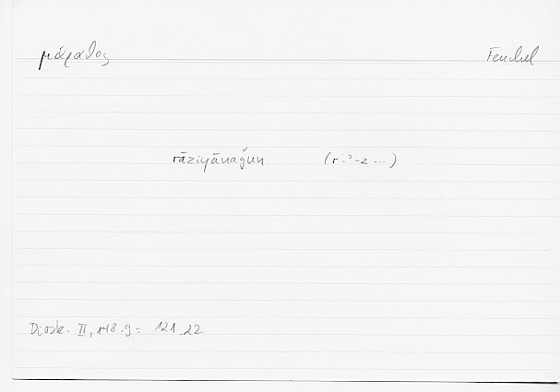 μάραθος Fenchel
rāziyānaǧun (r-ʾ-z ...)
Diosk. II, 148.9 = 121.22